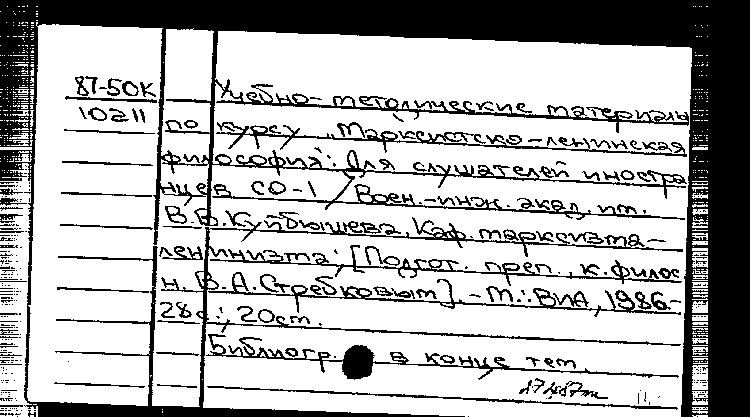 87-50К
10211
Учебно-методические материалы
по курсу „Марксистско-ленинская
философия“: Для слушателей иностра
нцев СО-1 / Воен.-инж. акад. им.
В.В.Куйбышева, Каф. марксизма-
ленинизма; [Подгот. преп., к. филос.
н. В.А.Стребковым]. - М.: ВИА, 1986.-
28с.; 20см.
Библиогр. в конце тем.